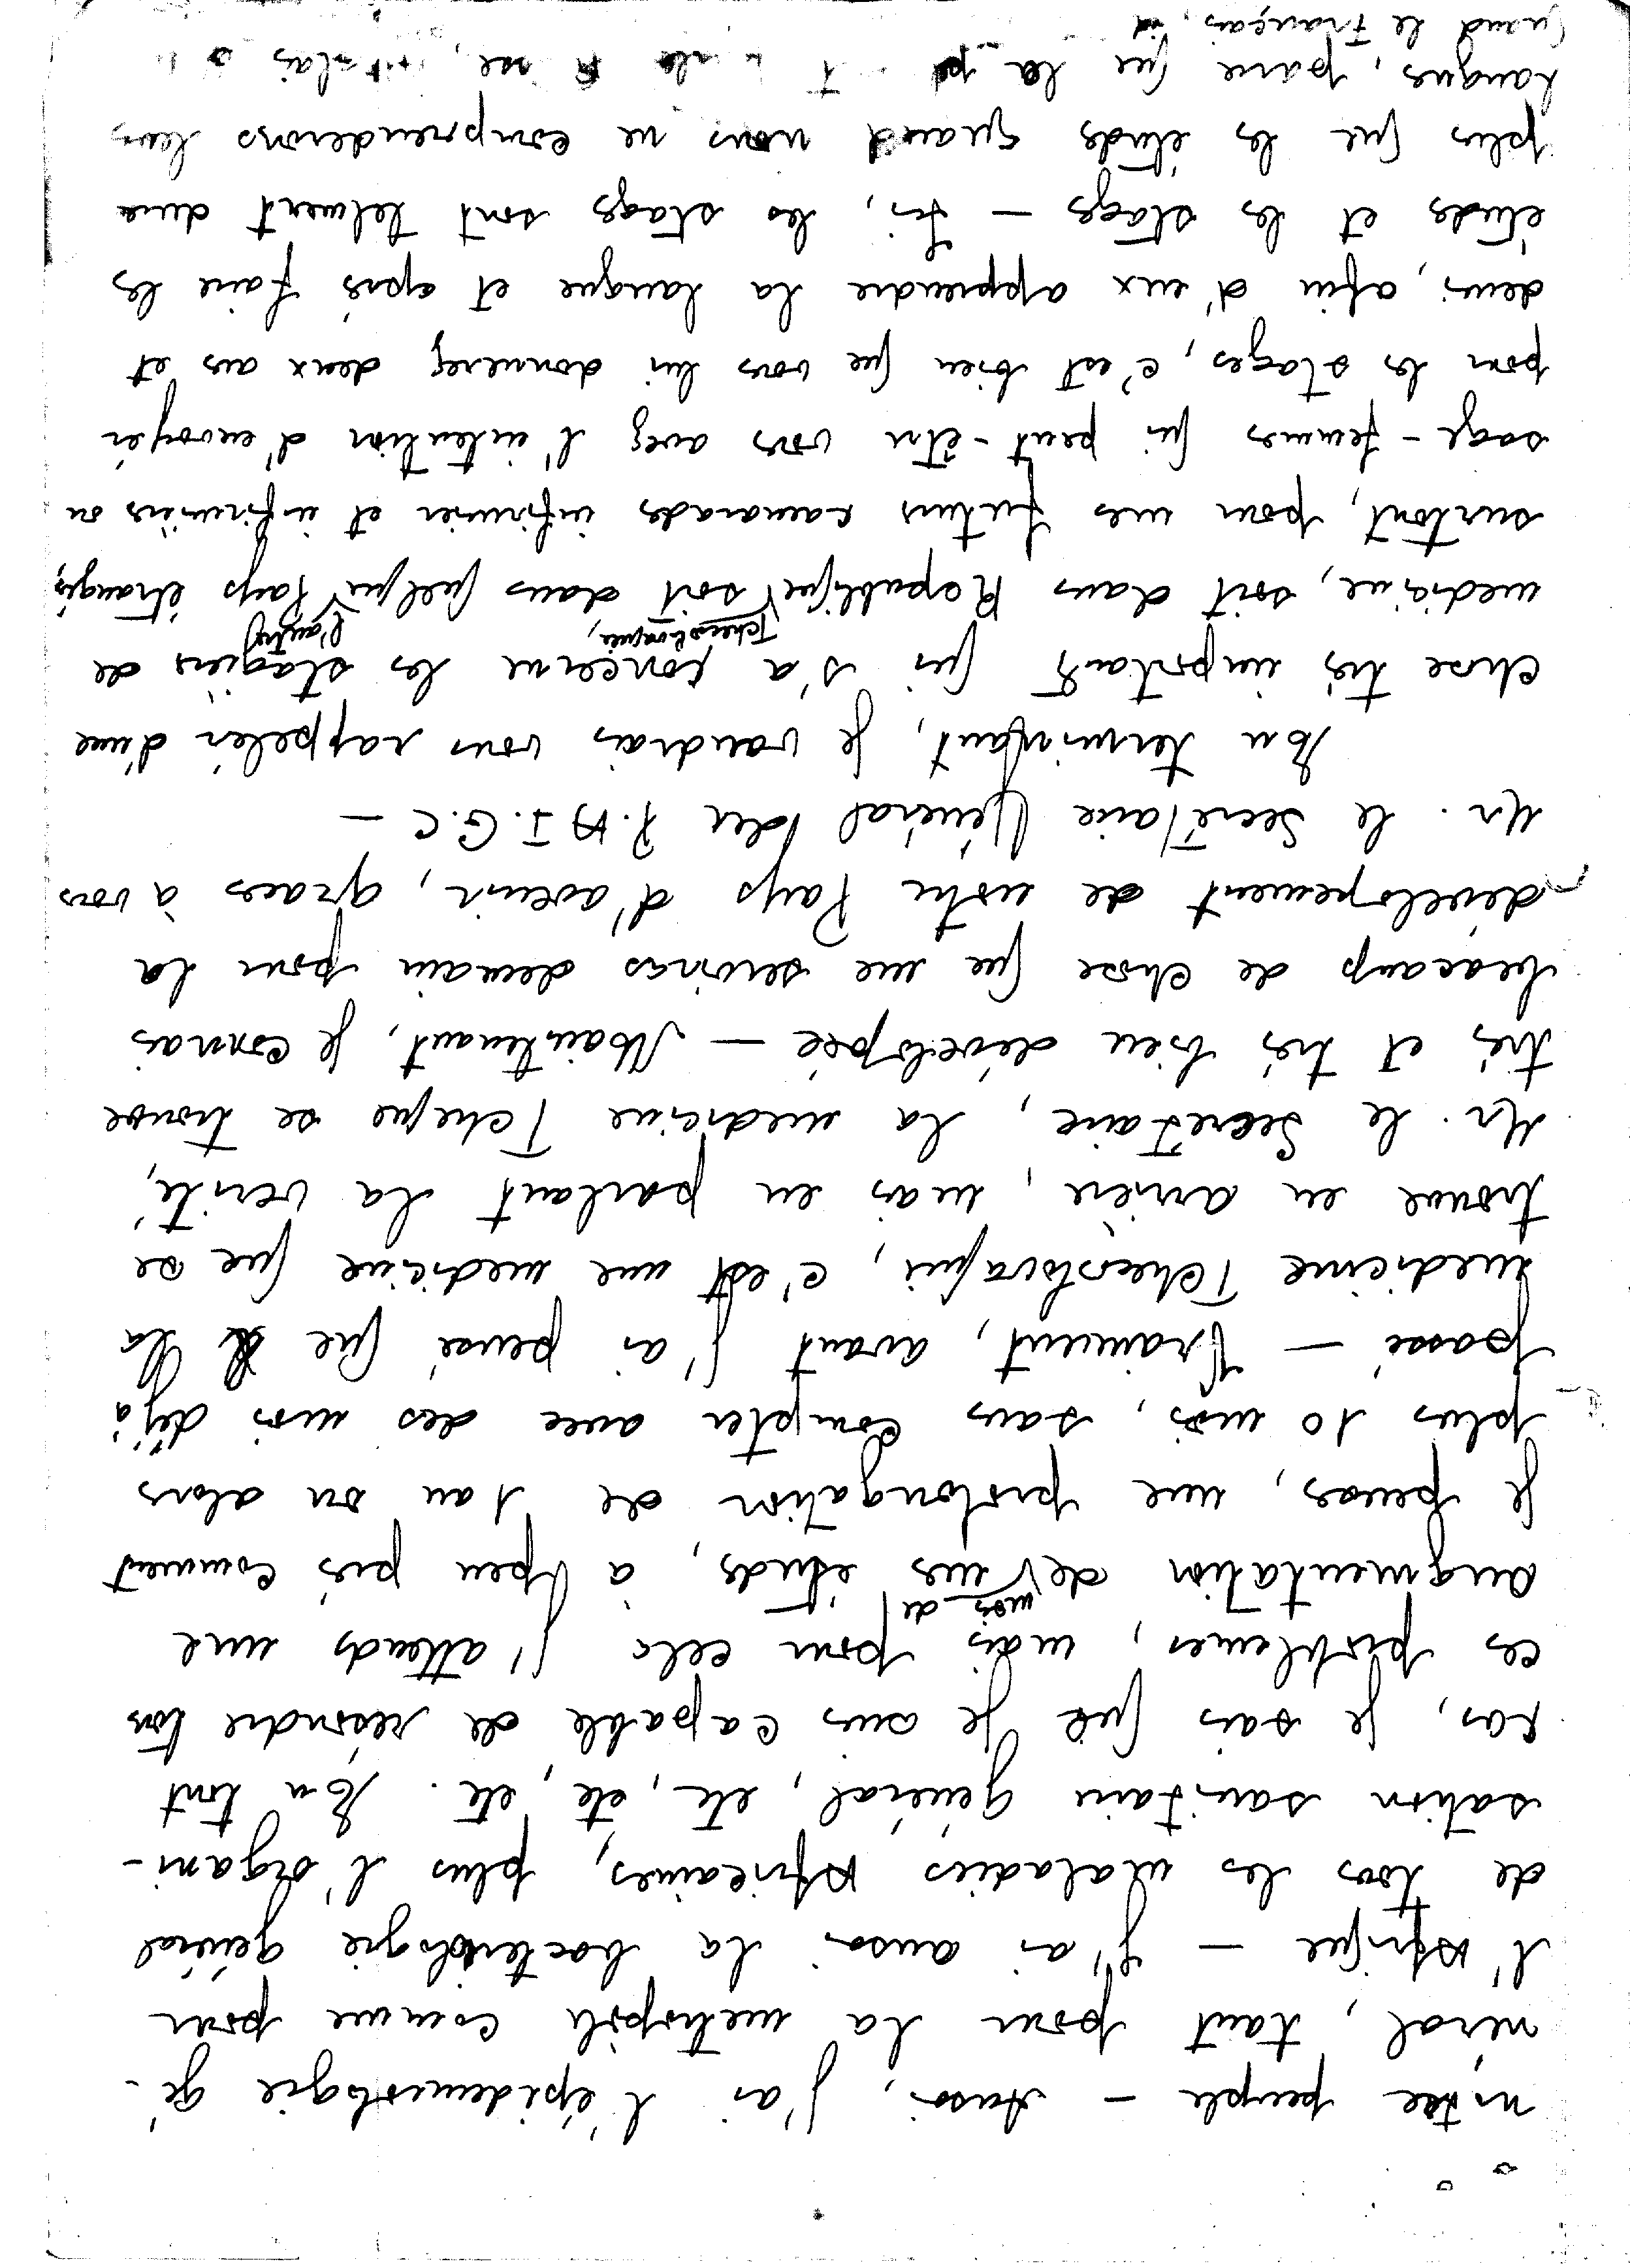 notre peuple — Aussi, j'ai l'épidemiologie gé-
néral, tant pour la metropoli comme pour
l'Afrique — J'ai aussi la bacteriologie général
de tous les maladies Africaines, plus l'organi-
sation sanitaire général, etc, etc, etc. En tout
cas, je sais que je suis capable de résoudre tous
ces problemes, mais pour celà j'attends une
augmentation de mois de mes études, à peu prés comment
je pensas, une prolongation de 1 an ou alors
plus 10 mois, sans compter avec des mois déjà
passé — Vraiment, avant j'ai pensé que la
medicine Tcheslovaqui, c'est une medicine que se
trouve en arrière, mais en parlant la verité,
Mr. le Secretaire, la medicine Tcheque se trouve
trés et trés bien développée — Maintenant, je connais
beacoup de chose que me serviras demain pour la
développement de notre Pays d'avenir, graces à vous
Mr. le Secrétaire Général du P.A.I.G.C —
En terminant, je voudrais vous rappeler d'une
chose trés important qui s'a concerne les stagiers de
medicine, soit dans Republique Tcheslovaquie, soit dans quelque d'autres Pays étrangis,
surtout, pour mes futurs camarades infirmier et infirmiers ou
sage-femmes qui peut-être vous avez l'intention d'envoyér
pour les stages, c'est bien que vous lui donnerez deux ans et
demi, afin d'eux apprendre la langue et aprés faire les
études et les stages — Ici, les stages sont telment dure
plus que les études quand nous ne comprenderons leurs
langues, parce que la
quand le Français,